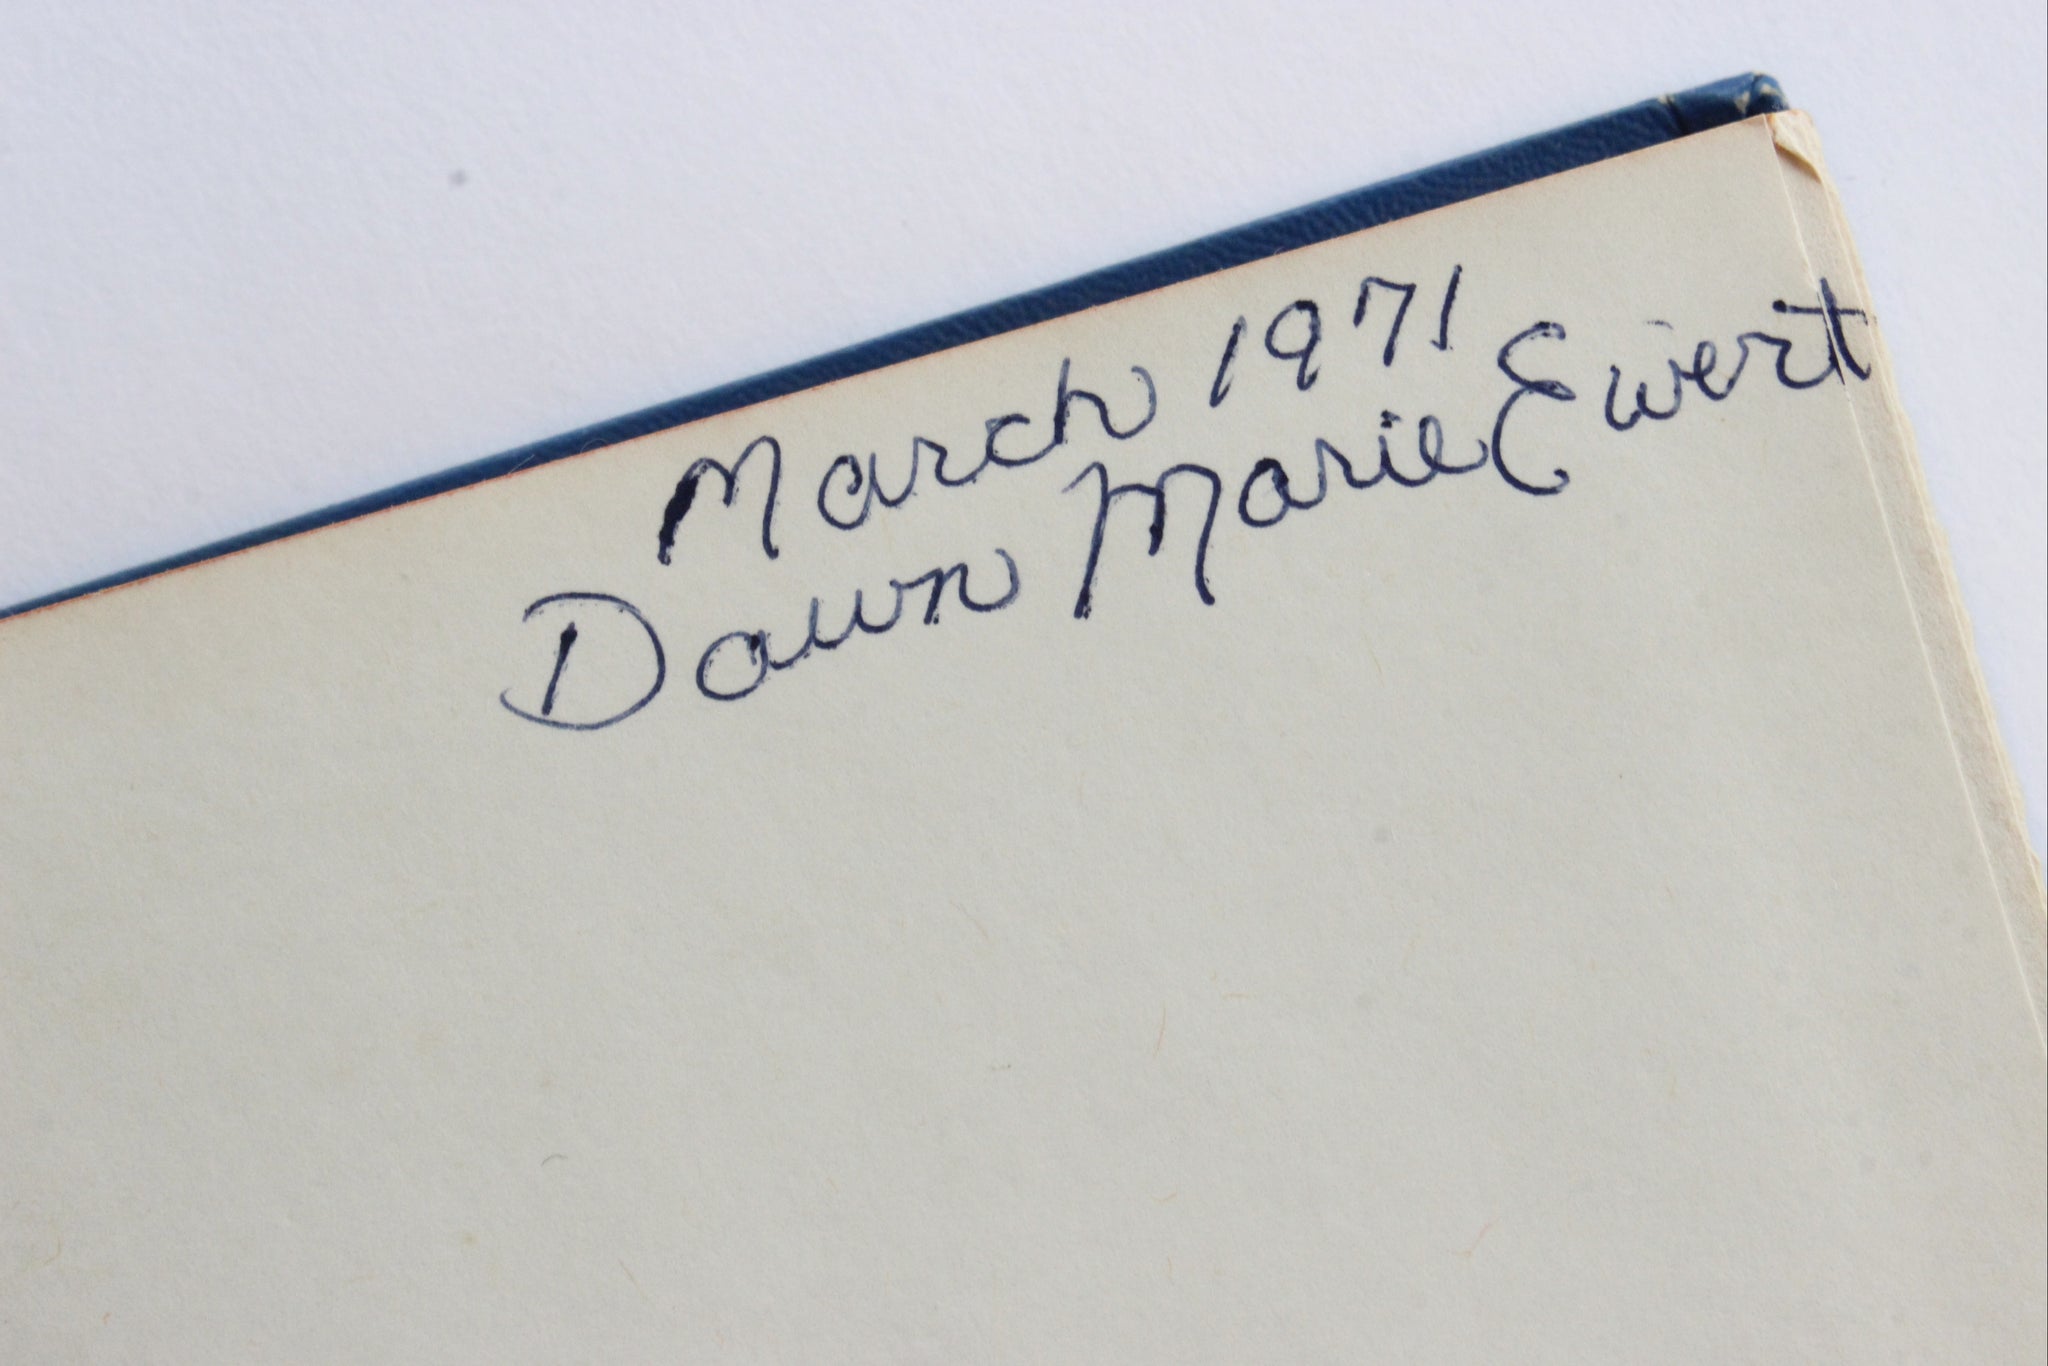 March 1971
Dawn Marie Ewert